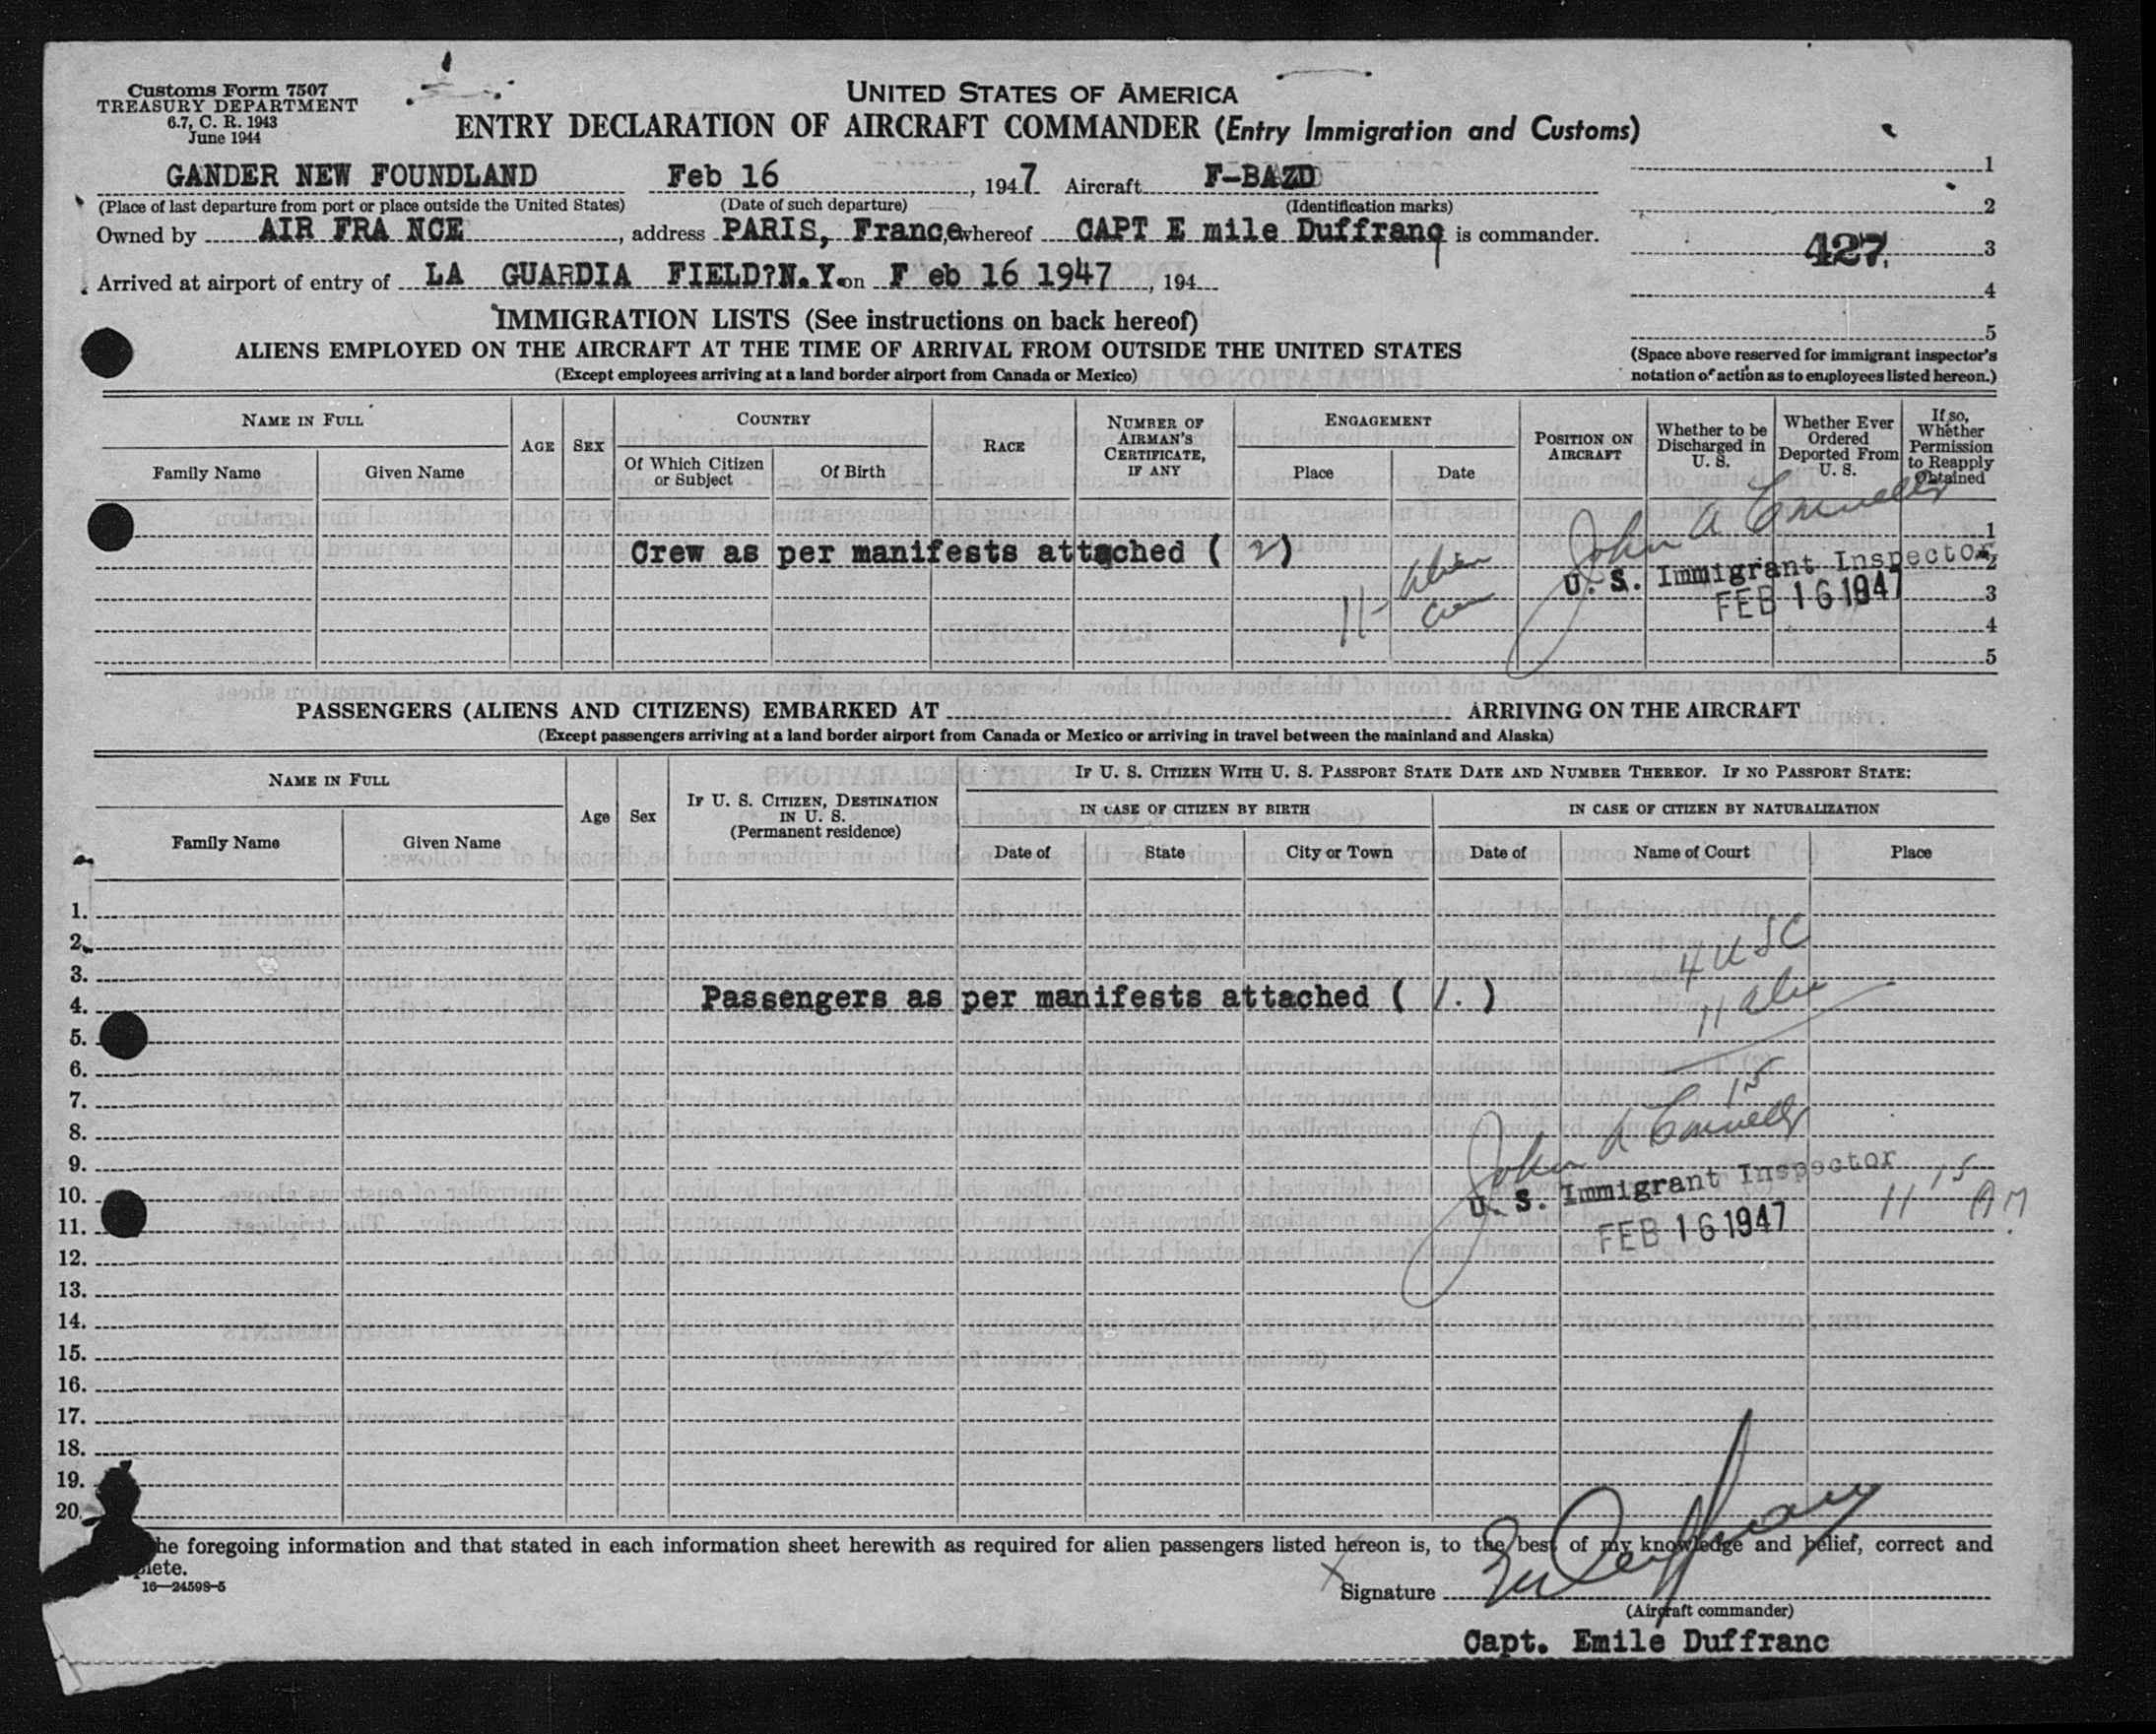 Customs Form 7507
TREASURY DEPARTMENT
6.7, C. R. 1943
June 1944
UNITED STATES OF AMERICA
ENTRY DECLARATION OF AIRCRAFT COMMANDER (Entry Immigration and Customs)
GANDER NEW FOUNDLAND Feb 16, 1947 Aircraft F-BAZD 1
(Place of last departure from port or place outside the United States) (Date of such departure) (Identification marks) 2
Owned by AIR FRA NCE, address PARIS, France, whereof CAPT E mile Duffranq is commander. 427. 3
Arrived at airport of entry of LA GUARDIA FIELD?N.Y. on F eb 16 1947, 194 4
IMMIGRATION LISTS (See instructions on back hereof) 5
ALIENS EMPLOYED ON THE AIRCRAFT AT THE TIME OF ARRIVAL FROM OUTSIDE THE UNITED STATES
(Except employees arriving at a land border airport from Canada or Mexico)
(Space above reserved for immigrant inspector's
notation of action as to employees listed hereon.)
NAME IN FULL
Family Name Given Name
AGE SEX
COUNTRY
Of Which Citizen or Subject Of Birth
RACE
NUMBER OF AIRMAN'S CERTIFICATE, IF ANY
ENGAGEMENT
Place Date
POSITION ON AIRCRAFT
Whether to be Discharged in U. S.
Whether Ever Ordered Deported From U. S.
If so, Whether Permission to Reapply Obtained
John A Connelly
1
Crew as per manifests attached ( 2 )
11- Alien
Crew
U. S. Immigrant Inspector 2
FEB 16 1947 3
4
5
PASSENGERS (ALIENS AND CITIZENS) EMBARKED AT ARRIVING ON THE AIRCRAFT
(Except passengers arriving at a land border airport from Canada or Mexico or arriving in travel between the mainland and Alaska)
NAME IN FULL
Family Name Given Name
Age Sex
IF U. S. CITIZEN, DESTINATION IN U. S.
(Permanent residence)
IF U. S. CITIZEN WITH U. S. PASSPORT STATE DATE AND NUMBER THEREOF. IF NO PASSPORT STATE:
IN CASE OF CITIZEN BY BIRTH IN CASE OF CITIZEN BY NATURALIZATION
Date of State City or Town Date of Name of Court Place
1.
2. 4 USC
3.
4. Passengers as per manifests attached ( 1. ) 11 alien
5.
6. 15
7.
8. John A Connelly
9.
10. U. S. Immigrant Inspector 11 15 AM
11. FEB 16 1947
12.
13.
14.
15.
16.
17.
18.
19.
20.
he foregoing information and that stated in each information sheet herewith as required for alien passengers listed hereon is, to the best of my knowledge and belief, correct and
plete.
16—24598-5
X Signature
(Aircraft commander)
Capt. Emile Duffranc